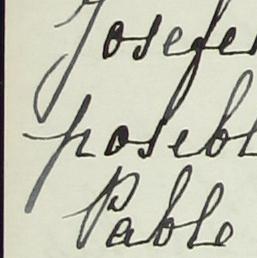 Josefe
posebl
Pable